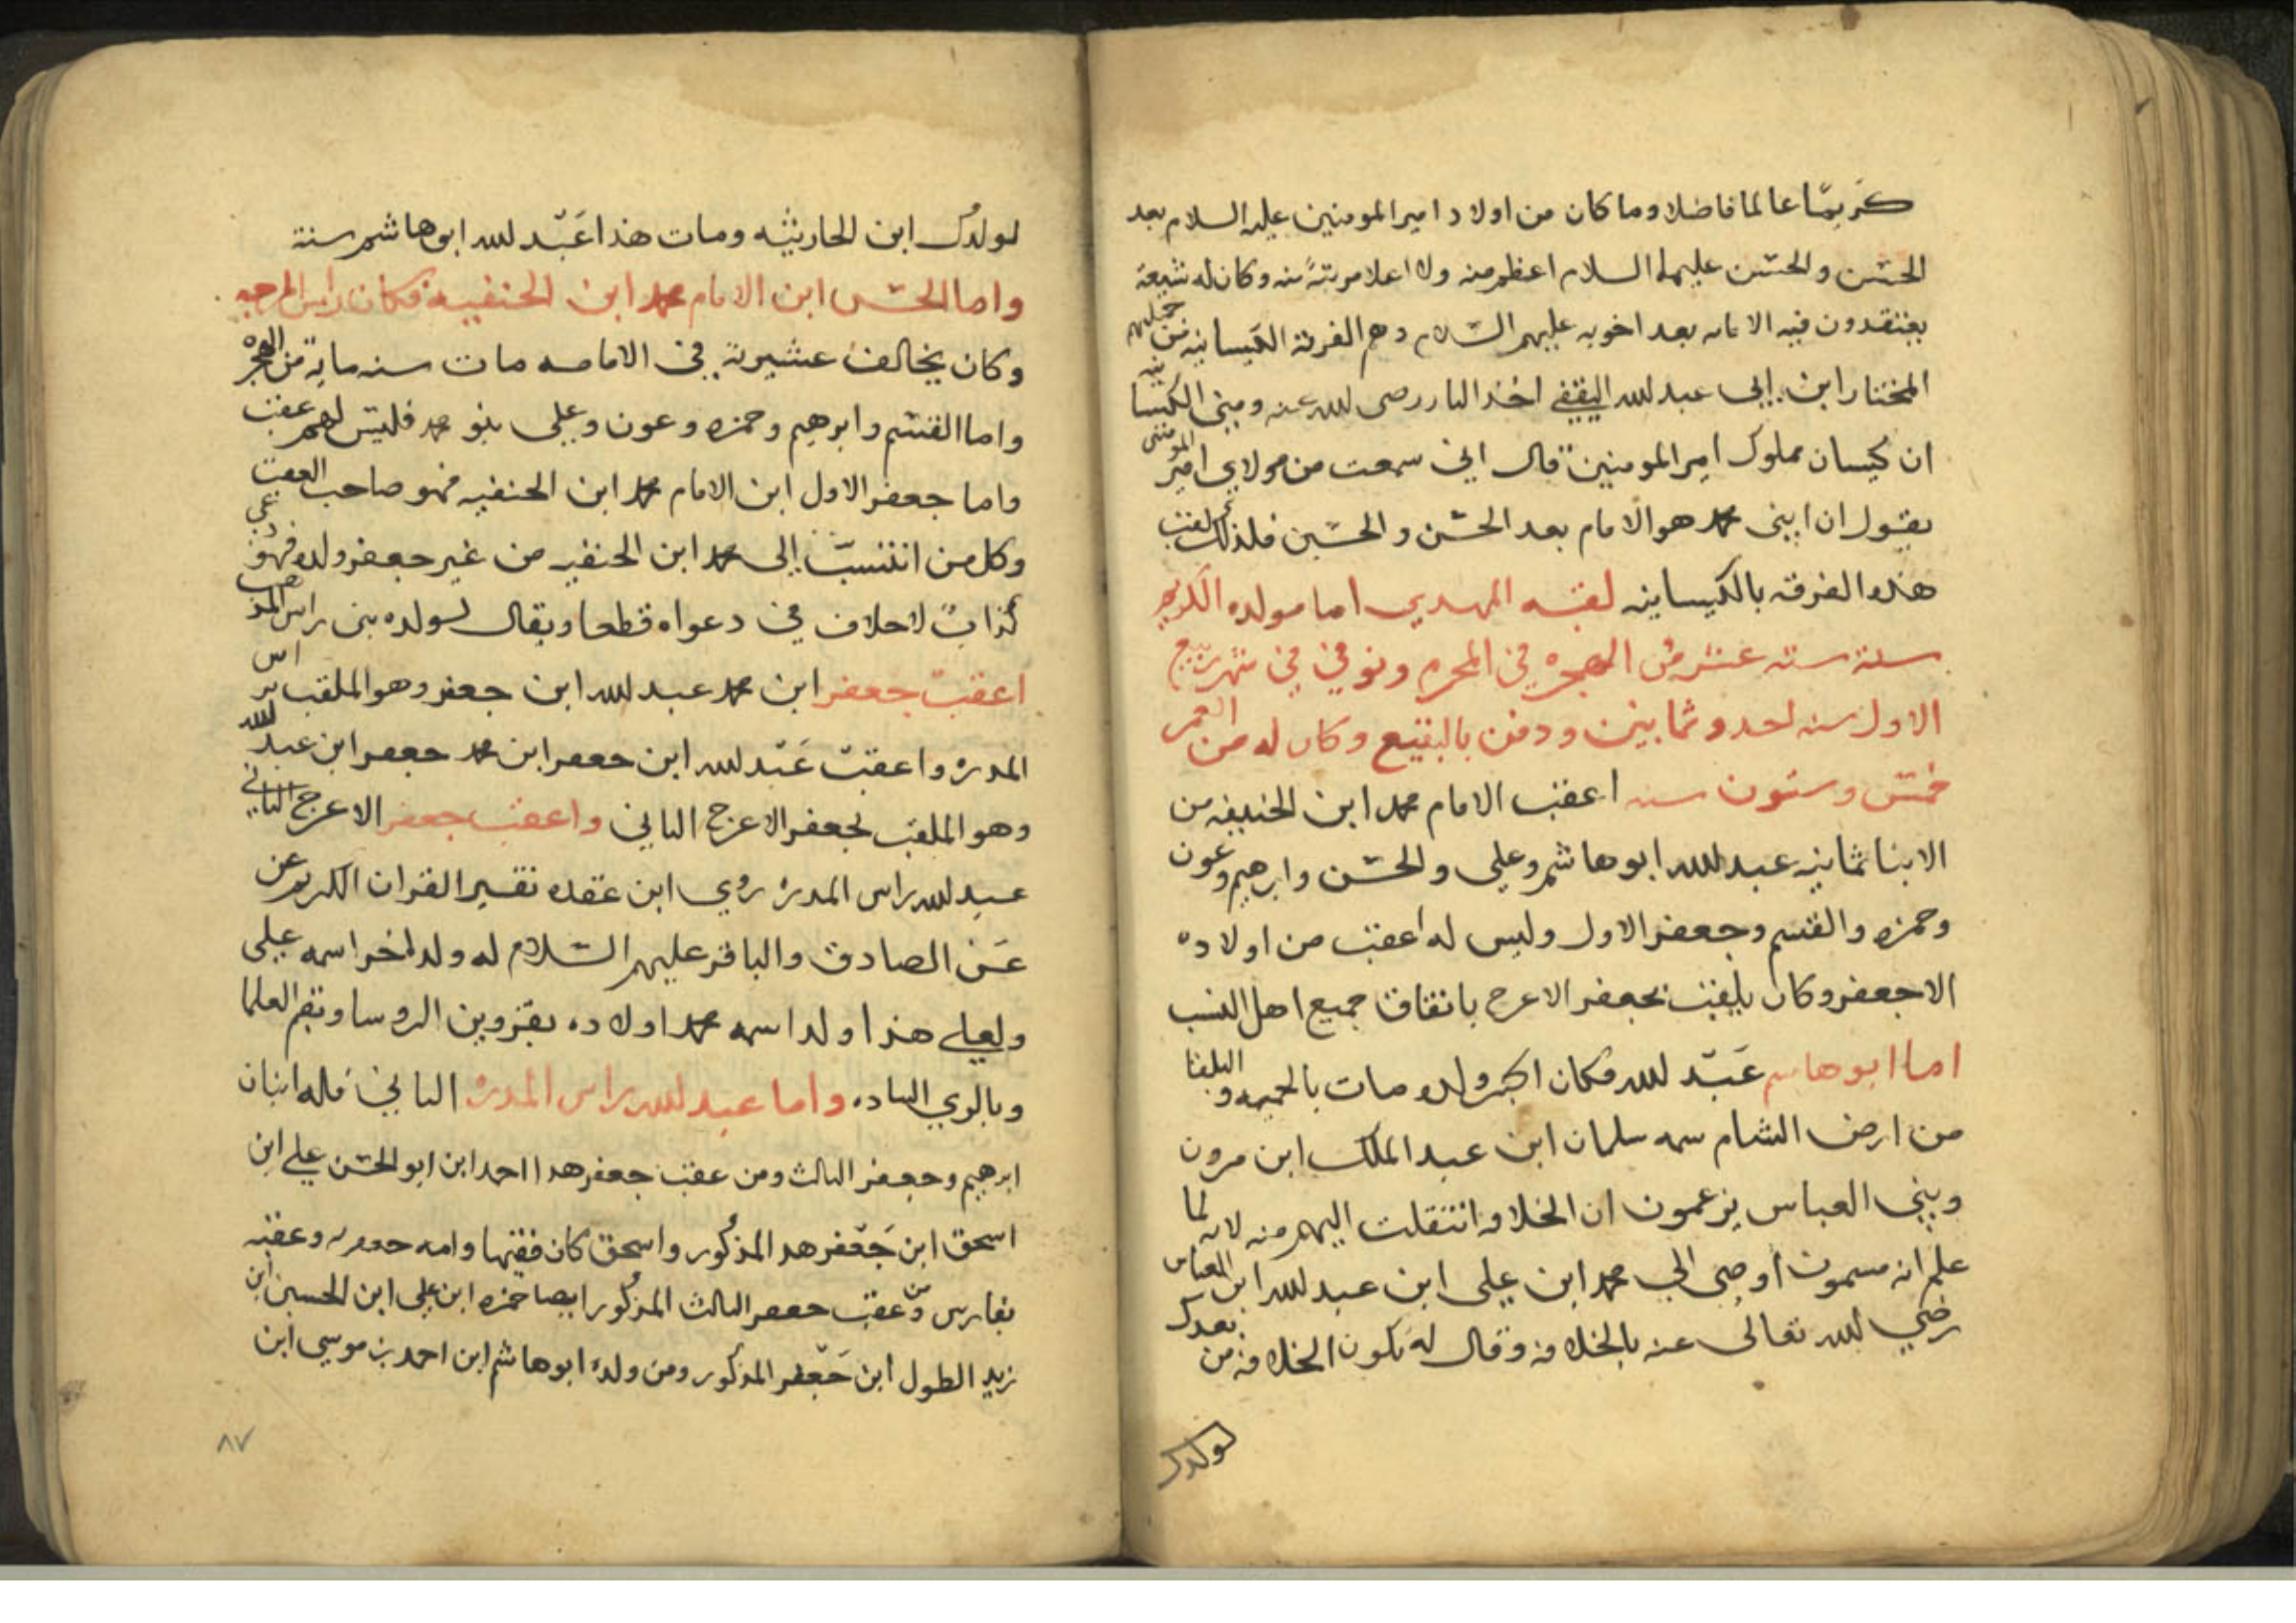 كريمًا عالما فاضلا وما كان من اولاد امير المومنين عليه السلام بعد
الحسن والحسين عليهما السلام اعظم منه ولا اعلا مرتبةً منه وكان له شيعة
يعتقدون فيه الامامه بعد اخويه عليهم السلام وهم الفرقة الكيسانيه من جملهم
المختار ابن ابي عبد الله الثقفي اخذ الثار رضى الله عنه وبنى الكيسانيه
ان كيسان مملوك امير المومنين قال اني سمعت من مولاي امير المومنين
يقول ان ابني محمد هو الامام بعد الحسن والحسين فلذلك لقبت
هذه الفرقه بالكيسانيه لقبه المهدي اما مولده الكريم
سنة ستة عشر من الهجره في المحرم وتوفي في شهر ربيع
الاول سنه احد وثمانين ودفن بالبقيع وكان له من العمر
خمس وستون سنه اعقب الامام محمد ابن الحنيفه من
الابنا ثمانيه عبد الله ابو هاشم وعلي والحسن وابرهيم وعون
وحمزه والقسم وجعفر الاول وليس له اعقب من اولاده
الا جعفر وكان يلقب بجعفر الاعرج باتفاق جميع اهل النسب
اما ابو هاشم عبد الله فكان اكبر ولده مات بالحميمه والبلقا
من ارض الشام سمه سلمان ابن عبد الملك ابن مرون
وبني العباس يزعمون ان الخلافه انتقلت اليهم منه لانه لما
علم انه مسموم اوصى الي محمد ابن علي ابن عبد الله ابن العباس
رضي الله تعالى عنه بالخلافه وقال له تكون الخلافه من بعدك
لولدك
لولدك ابن الحارثيه ومات هذا عبد الله ابو هاشم سنة
واما الحسن ابن الامام محمد ابن الحنفيه فكان راس المرجيه
وكان يخالف عشيرته في الامامه مات سنه ماية من الهجره
واما القسم وابرهيم وحمزه وعون وعلي بنو محمد فليس لهم عقب
واما جعفر الاول ابن الامام محمد ابن الحنفيه فهو صاحب العقب
وكل من انتسب إلى محمد ابن الحنفيه من غير جعفر ولده فهو دعي
كذاب لا خلاف في دعواه قطعا ويقال لولده بنى راس المذهب
اعقب جعفر ابن محمد عبد الله ابن جعفر وهو الملقب براس
المدره واعقب عبد الله ابن جعفر ابن محمد جعفر ابن عبد الله
وهو الملقب بجعفر الاعرج الثاني واعقب جعفر الاعرج الثاني
عبد الله راس المدره روي ابن عقده تفسير القران الكريم عن
عن الصادق والباقر عليهم السلام له ولد اخر اسمه علي
ولعلي هذا ولد اسمه محمد اولاده بقزوين الروسا وبقم العلما
وبالري الساده واما عبد الله راس المدره الثاني فله ابنان
ابرهيم وجعفر الثالث ومن عقب جعفر هذا احمد ابن ابو الحسن علي ابن
اسحق ابن جعفر هذا المذكور واسحق كان فقيها وامه وعقبه
بفارس ومن عقب جعفر الثالث المذكور ايضا حمزه ابن علي ابن الحسين ابن
زيد الطول ابن جعفر المذكور ومن ولده ابو هاشم ابن احمد بن موسى ابن
٨٧